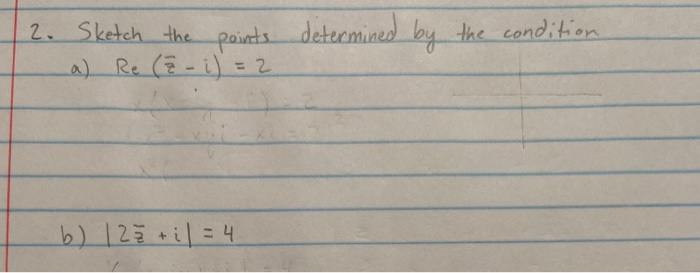 2. Sketch the points determined by the condition
a) Re (z̅ - i) = 2
b) |2z̅ + i| = 4